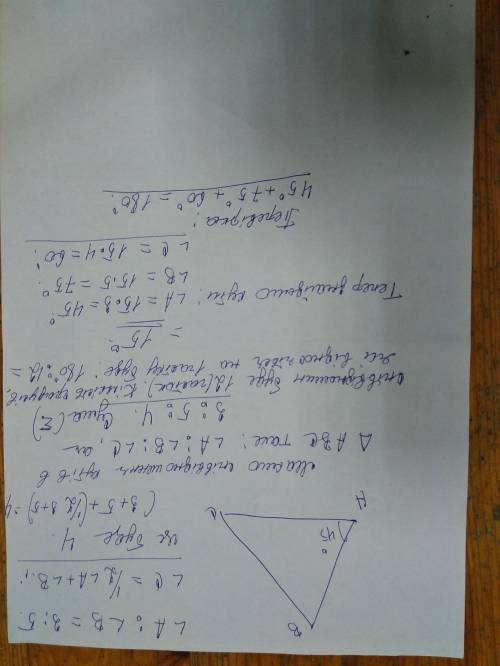 ∠A : ∠B = 3 : 5.
∠C = 1/2 ∠A + ∠B;
це буде 4.
(3+5 + (1/2 3+5) = 4
маємо співвідношень кутів в
Δ ABC таке: ∠A : ∠B : ∠C, як
3 : 5 : 4. Сума (Σ)
буде 12 (часток). Кількість градусів,
на 1 частку буде: 180° : 12 =
= 15°.
Тепер знайдемо кути:
∠A = 15·3 = 45°
∠B = 15·5 = 75°.
∠C = 15·4 = 60°.
Перевірка:
45° + 75° + 60° = 180°.
B
C
A
45°